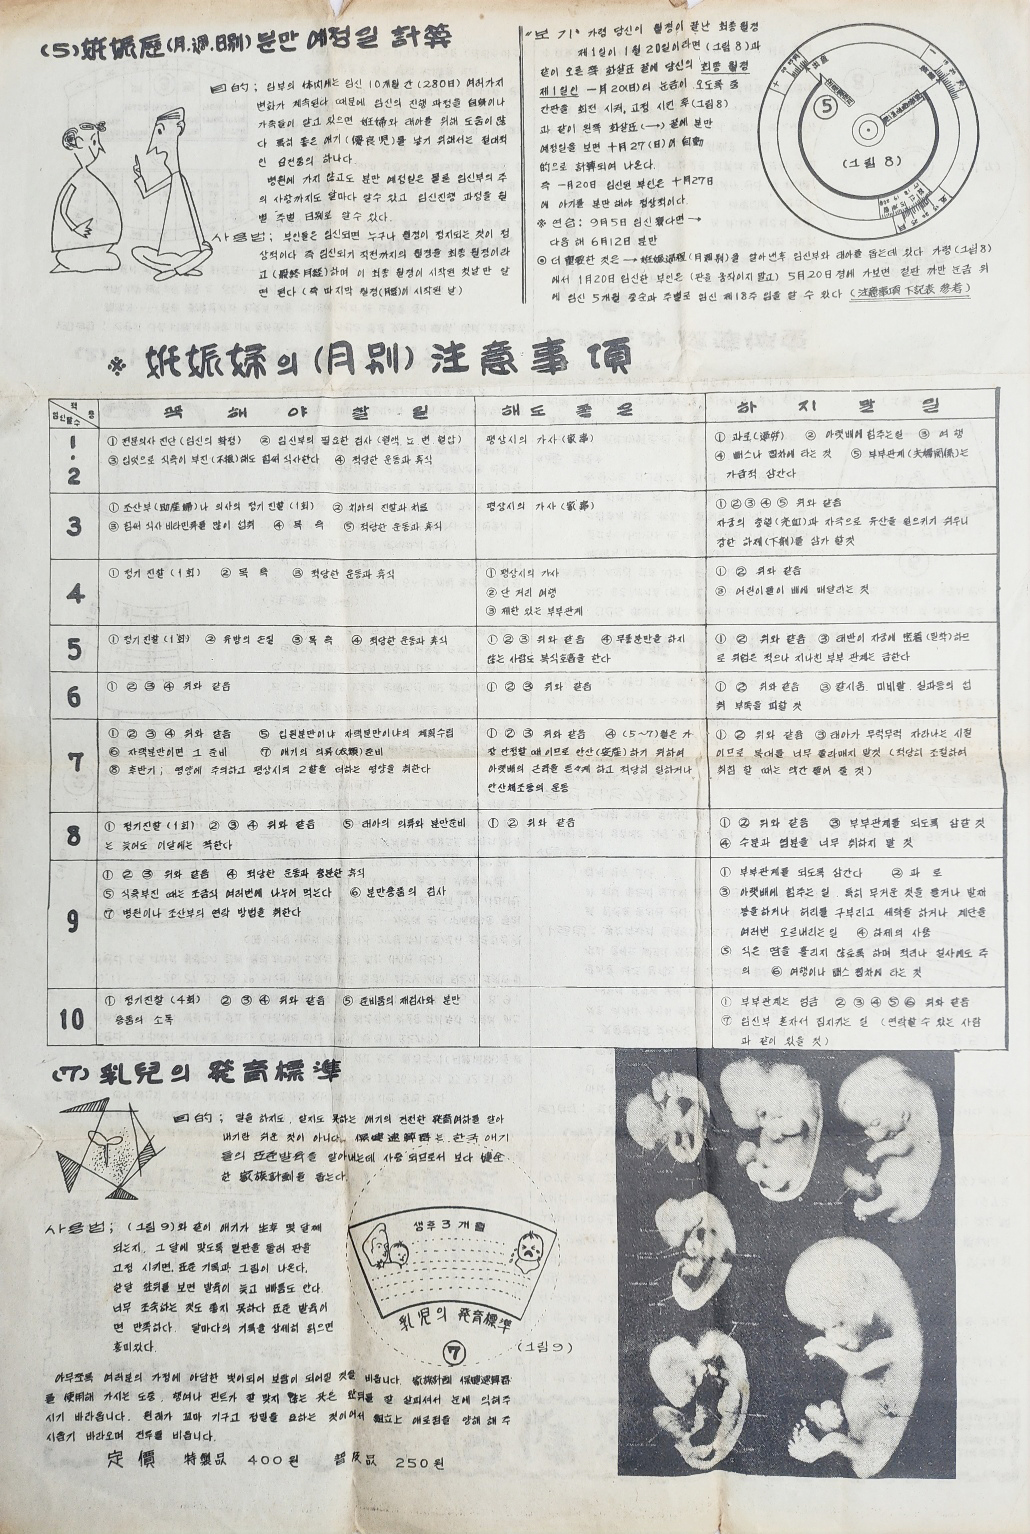 (5) 姙娠歷(月.週.日別) 분만 예정일 計算
目的; 임부의 体内에는 임신 10개월간 (280日) 여러가지
변화가 계속된다 때문에 임신의 진행 과정을 自身이나
가족들이 알고 있으면 妊婦와 태아를 위해 도움이 많
다 특히 좋은 애기(優良児)를 낳기 위해서는 절대적
인 급선무의 하나다.
병원에 가지 않고도 분만 예정일은 물론 임신부의 주
의 사항까지도 달마다 알수 있고 임신진행 과정을 월
별 주별 日別로 알 수 있다.
사용법; 부인들은 임신되면 누구나 월경이 정지되는 것이 정
상적이다 즉 임신되기 직전까지의 월경을 최종 월경이라
고 (最終月経)하며 이 최종 월경이 시작된 첫날만 알
면 된다 (즉 마지막 월경(月經)이 시작된 날)
"보기" 가령 당신이 월경이 끝난 최종월경
제1일이 1월 20일이라면 (그림 8)과
같이 오른쪽 화살표 끝에 당신의 최종 월경
제1일인 一月 20(日)의 눈금이 오도록 중
간판을 회전 시켜, 고정 시킨 후 (그림8)
과 같이 왼쪽 화살표(→) 끝에 분만
예정일을 보면 十月 27(日)이 自動
的으로 計算되여 나온다.
즉 一月20日 임신된 부인은 十月27日
에 아기를 분만 해야 정상적이다.
※ 연습: 9月5日 임신됬다면 →
다음 해 6月12日 분만
⊙ 더 重要한 것은 → 姙娠過程(月週別)을 알아낸후 임신부와 태아를 돕는데 있다 가령 (그림8)
에서 1月20日 임신한 부인은 (판을 움직이지 말고) 5月20日 경에 가보면 겉판 까만 눈금 위
에 임신 5개월 중순과 주별로 임신 제18주 임을 알 수 있다 (注意事項 下記表 参考)
⑤
(그림 8)
※ 姙娠婦의 (月別) 注意事項
꼭 해야 할 일
해도 좋은
하지말 일
1·2
① 전문의사 진단 (임신의 확정) ② 임신부의 필요한 검사 (혈액 뇨 변 혈압)
③ 입덧으로 식욕이 부진(不振)해도 힘써 식사한다 ④ 적당한 운동과 휴식
평상시의 가사 (家事)
① 과로(過労) ② 아랫배에 힘주는일 ③ 여행
④ 뻐스나 찝차에 타는 것 ⑤ 부부관계(夫婦関係)는
가급적 삼간다
3
① 조산부(助産婦)나 의사의 정기 진찰 (1회) ② 치아의 진찰과 치료
③ 힘써 식사 비타민류를 많이 섭취 ④ 목욕 ⑤ 적당한 운동과 휴식
평상시의 가사 (家事)
①②③④⑤ 위와 같음
자궁의 충혈(充血)과 자극으로 유산을 일으키기 쉬우니
강한 하제(下剤)를 삼가 할것
4
① 정기 진찰 (1회) ② 목욕 ③ 적당한 운동과 휴식
① 평상시의 가사
② 단 거리 여행
③ 제한 있는 부부관계
① ② 위와 같음
③ 어린이들이 배에 매달리는 것
5
① 정기진찰 (1회) ② 유방의 손질 ③ 목욕 ④ 적당한 운동과 휴식
① ② ③ 위와 같음 ④ 무통분만을 하지
않는 사람도 복식호흡을 한다
① ② 위와 같음 ③ 태반이 자궁에 密着(밀착)하므
로 위험은 적으나 지나친 부부 관계는 금한다
6
① ② ③ ④ 위와 같음
① ② ③ 위와 같음
① ② 위와 같음 ③ 칼시움 비타민 철과등의 섭
취 부족을 피할 것
7
① ② ③ ④ 위와 같음 ⑤ 입원분만이냐 자택분만이냐의 계획수립
⑥ 자택분만이면 그 준비 ⑦ 애기의 의류(衣類)준비
⑧ 후반기; 영양에 주의하고 평상시의 2할을 더하는 영양을 취한다
① ② ③ 위와 같음 ④ (5~7)월은 가
장 안정할 때 이므로 안산(安産)하기 위하여
아랫배의 근력을 튼々케 하고 적당히 일하거나
안산체조등의 운동
① ② 위와 같음 ③ 태아가 무럭무럭 자라나는 시월
이므로 복대를 너무 졸라매지 말것 (적당히 조절하여
취침 할 때는 약간 풀어 줄 것)
8
① 정기진찰 (1회) ② ③ ④ 위와 같음 ⑤ 태아의 의류와 분만준비
는 늦어도 이달에는 꼭한다
① ② 위와 같음
① ② 위와 같음 ③ 부부관계를 되도록 삼갈 것
④ 수분과 염분을 너무 취하지 말 것
9
① ② ③ 위와 같음 ④ 적당한 운동과 충분한 휴식
⑤ 식욕부진 때는 조금식 여러번에 나누어 먹는다 ⑥ 분만용품의 검사
⑦ 병원이나 조산부의 연락 방법을 취한다
① 부부관계를 되도록 삼간다 ② 과로
③ 아랫배에 힘주는 일. 특히 무거운 것을 들거나 빨래
방을하거나 허리를 구부리고 세탁을 하거나 계단을
여러번 오르내리는일 ④ 하제의 사용
⑤ 식은 땀을 흘리지 않토록 하며 적리나 설사에도 주
의 ⑥ 여행이나 뻐스 찝차에 타는 것
10
① 정기진찰 (4회) ② ③ ④ 위와 같음 ⑤ 준비품의 재검사와 분만
용품의 소독
① 부부관계는 엄금 ② ③ ④ ⑤ ⑥ 위와 같음
⑦ 임신부 혼자서 집지키는 일 (연락할 수 있는 사람
과 같이 있을 것)
(7) 乳兒의 発育標準
目的; 말을 하지도, 알지도 못하는 애기의 건전한 発育여하를 알아
내기란 쉬운 것이 아니다. 保健速算器는 한국 애기
들의 표준발육을 알아내는데 사용 되므로서 보다 健全
한 家族計劃을 돕는다.
사용법; (그림 9)와 같이 애기가 生후 몇 달째
되는지, 그 달에 맞도록 밑판을 돌려 판을
고정 시키면, 표준 기록과 그림이 나온다.
한달 앞뒤를 보면 발육이 늦고 빠름도 안다.
너무 조숙하는 것도 좋지 못하다 표준 발육이
면 만족하다. 달마다의 기록을 상세히 읽으면
흥미있다.
생후 3 개월
乳児의 発育標準
⑦
(그림 9)
아무쪼록 여러분의 가정에 아담한 벗이되어 보람이 되어질 것을 비읍니다. 家族計劃 保健速算器
를 使用해 가시는 도중, 행여나 핀트가 잘 맞지 않는 곳은 앞뒤를 잘 살피셔서 눈에 익혀주
시기 바라옵니다. 원래가 꼬마 기구고 정밀을 요하는 것이어서 組立上 애로점을 양해 해 주
시옵기 바라오며 건투를 비옵니다.
定價 特製品 400원 普及品 250원